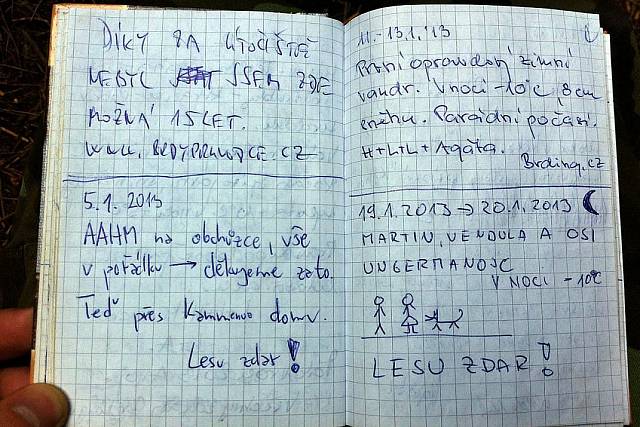 DÍKY ZA ÚTOČIŠTĚ
NEBYL JSEM ZDE
MOŽNÁ 15 LET.
5.1. 2013
AAHM na obchůzce, vše
v pořádku → děkujeme za to.
Teď přes Kamenno domů.
Lesu zdar!
11.-13.1.'13
První opravdový zimní
vandr. V noci -10°C, 8 cm
sněhu. Parádní počasí.
H+L+L+Agáta.
Brding.cz
19.1.2013 → 20.1.2013
MARTIN, VENDULA A OSI
UNGERMANOJC
V NOCI -10°C
LESU ZDAR!